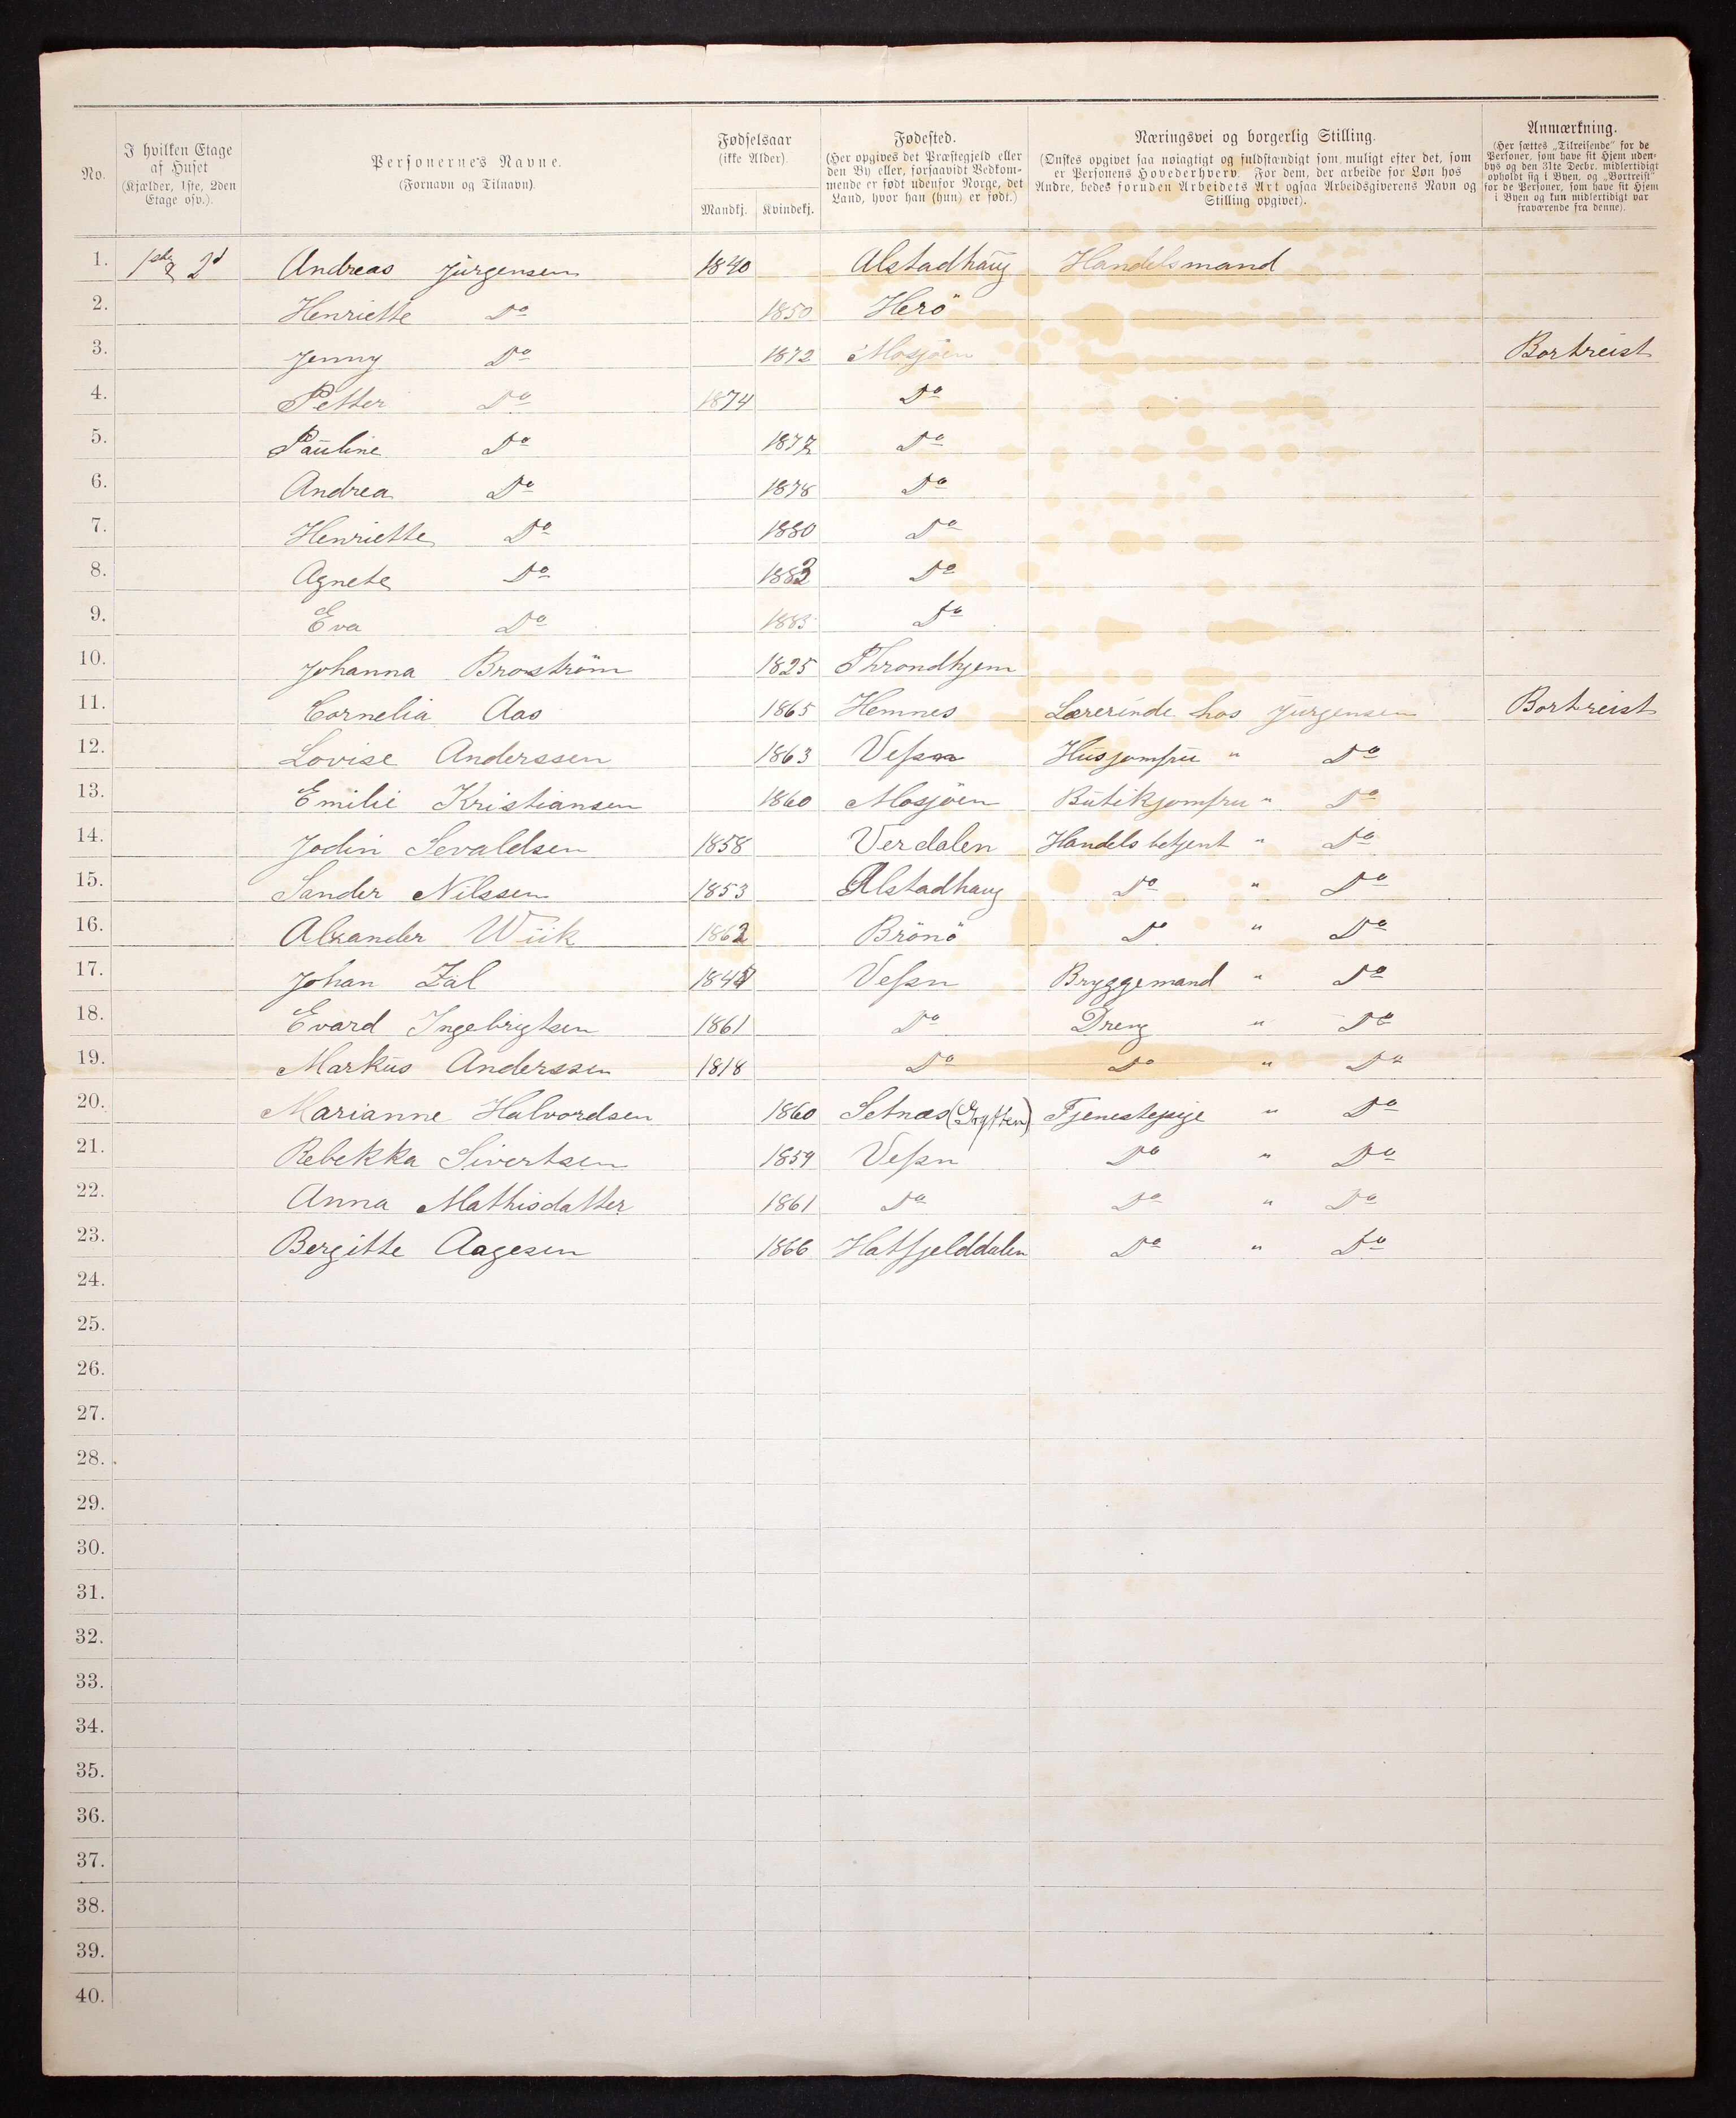 No.
I hvilken Etage
af Huset
(Kjælder, 1ste, 2den
Etage osv.).
Personernes Navne.
(Fornavn og Tilnavn)
Fødselsaar
(ikke Alder)
Mandkj. Kvindekj.
Fødested.
(Her opgives det Præstegjeld eller
den By eller, forsaavidt Vedkom-
mende er født udenfor Norge, det
Land, hvor han (hun) er født.)
Næringsvei og borgerlig Stilling.
(Ønskes opgivet saa nøiagtigt og fuldstændigt som muligt efter det, som
er Personens Hovederhverv. For dem, der arbeide for Løn hos
Andre, bedes foruden Arbeidets Art ogsaa Arbeidsgiverens Navn og
Stilling opgivet).
Anmærkning.
(Her sættes „Tilreisende" for de
Personer, som have sit Hjem uden-
bys og den 31te Decbr. midlertidigt
opholdt sig i Byen, og „Bortreist"
for de Personer, som have sit Hjem
i Byen og kun midlertidigt var
fraværende fra denne).
1. 1ste & 2d Andreas Jürgensen 1840 Alstadhaug Handelsmand
2. Henriette Do 1850 Herö
3. Jenny Do 1872 Mosjöen Bortreist
4. Petter Do 1874 Do
5. Pauline Do 1877 Do
6. Andrea Do 1878 Do
7. Henriette Do 1880 Do
8. Agnete Do 1883 Do
9. Eva Do 1885 Do
10. Johanna Broström 1825 Throndhjem
11. Cornelia Aas 1865 Hemnes Lærerinde hos Jürgensen Bortreist
12. Lovise Anderssen 1863 Vefsn Husjomfru " Do
13. Emilie Kristiansen 1860 Mosjöen Butikjomfru " Do
14. Jodin Sevaldsen 1858 Verdalen Handelsbetjent " Do
15. Sander Nilssen 1853 Alstadhaug Do " Do
16. Alxander Wiik 1862 Brönö Do " Do
17. Johan Zal Vefsn Bryggemand " Do
18. Evard Ingebrigtsen 1861 Do Dreng " Do
19. Markus Anderssen 1818 Do Do " Do
20. Marianne Halvordsen 1860 Setnæs Tjenestepige " Do
21. Rebekka Sivertsen 1859 Vefsn Do " Do
22. Anna Mathisdatter 1861 Do Do " Do
23. Bergitte Aagesen 1866 Hatfjelddalen Do " Do
24.
25.
26.
27.
28.
29.
30.
31.
32.
33.
34.
35.
36.
37.
38.
39.
40.